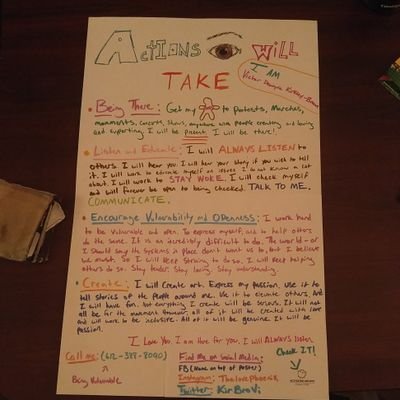 ACTIONS I WILL
TAKE
I AM
• Being There: Get my to Protests, Marches,
monuments, concerts, shows, anywhere with people creating and loving
and supporting. I will be present. I will be there!
• Listen and Educate: I will ALWAYS LISTEN to
others. I will hear you. I will hear your story if you wish to tell
it. I will work to educate myself on issues I do not know a lot
about. I will work to STAY WOKE. I will check myself
and will forever be open to being checked. TALK TO ME.
COMMUNICATE.
• Encourage Vulnerability and Openness: I will work hard
to be vulnerable and open. To express myself, and to help others
do the same. It is an incredibly difficult to do. The world - or
I should say the systems in place don't want us to, but I believe
we must. So I will keep striving to do so. I will keep helping
others do so. Stay tender. Stay loving. Stay understanding.
• Create: I will create art. Express my passion. Use it to
tell stories of the people around me. Use it to educate others. And
I will have fun. Not everything I create will be serious. It will not
all be for the movement. However, all of it will be created with care
and will work to be inclusive. All of it will be genuine. It will be
passion.
I Love You. I am Here for you. I will ALWAYS listen
Call me:
Being Vulnerable
Find Me on Social Media:
FB (Name on top of Poster)
Instagram: Thelovephoenix
Twitter: KirBravi
Check IT!